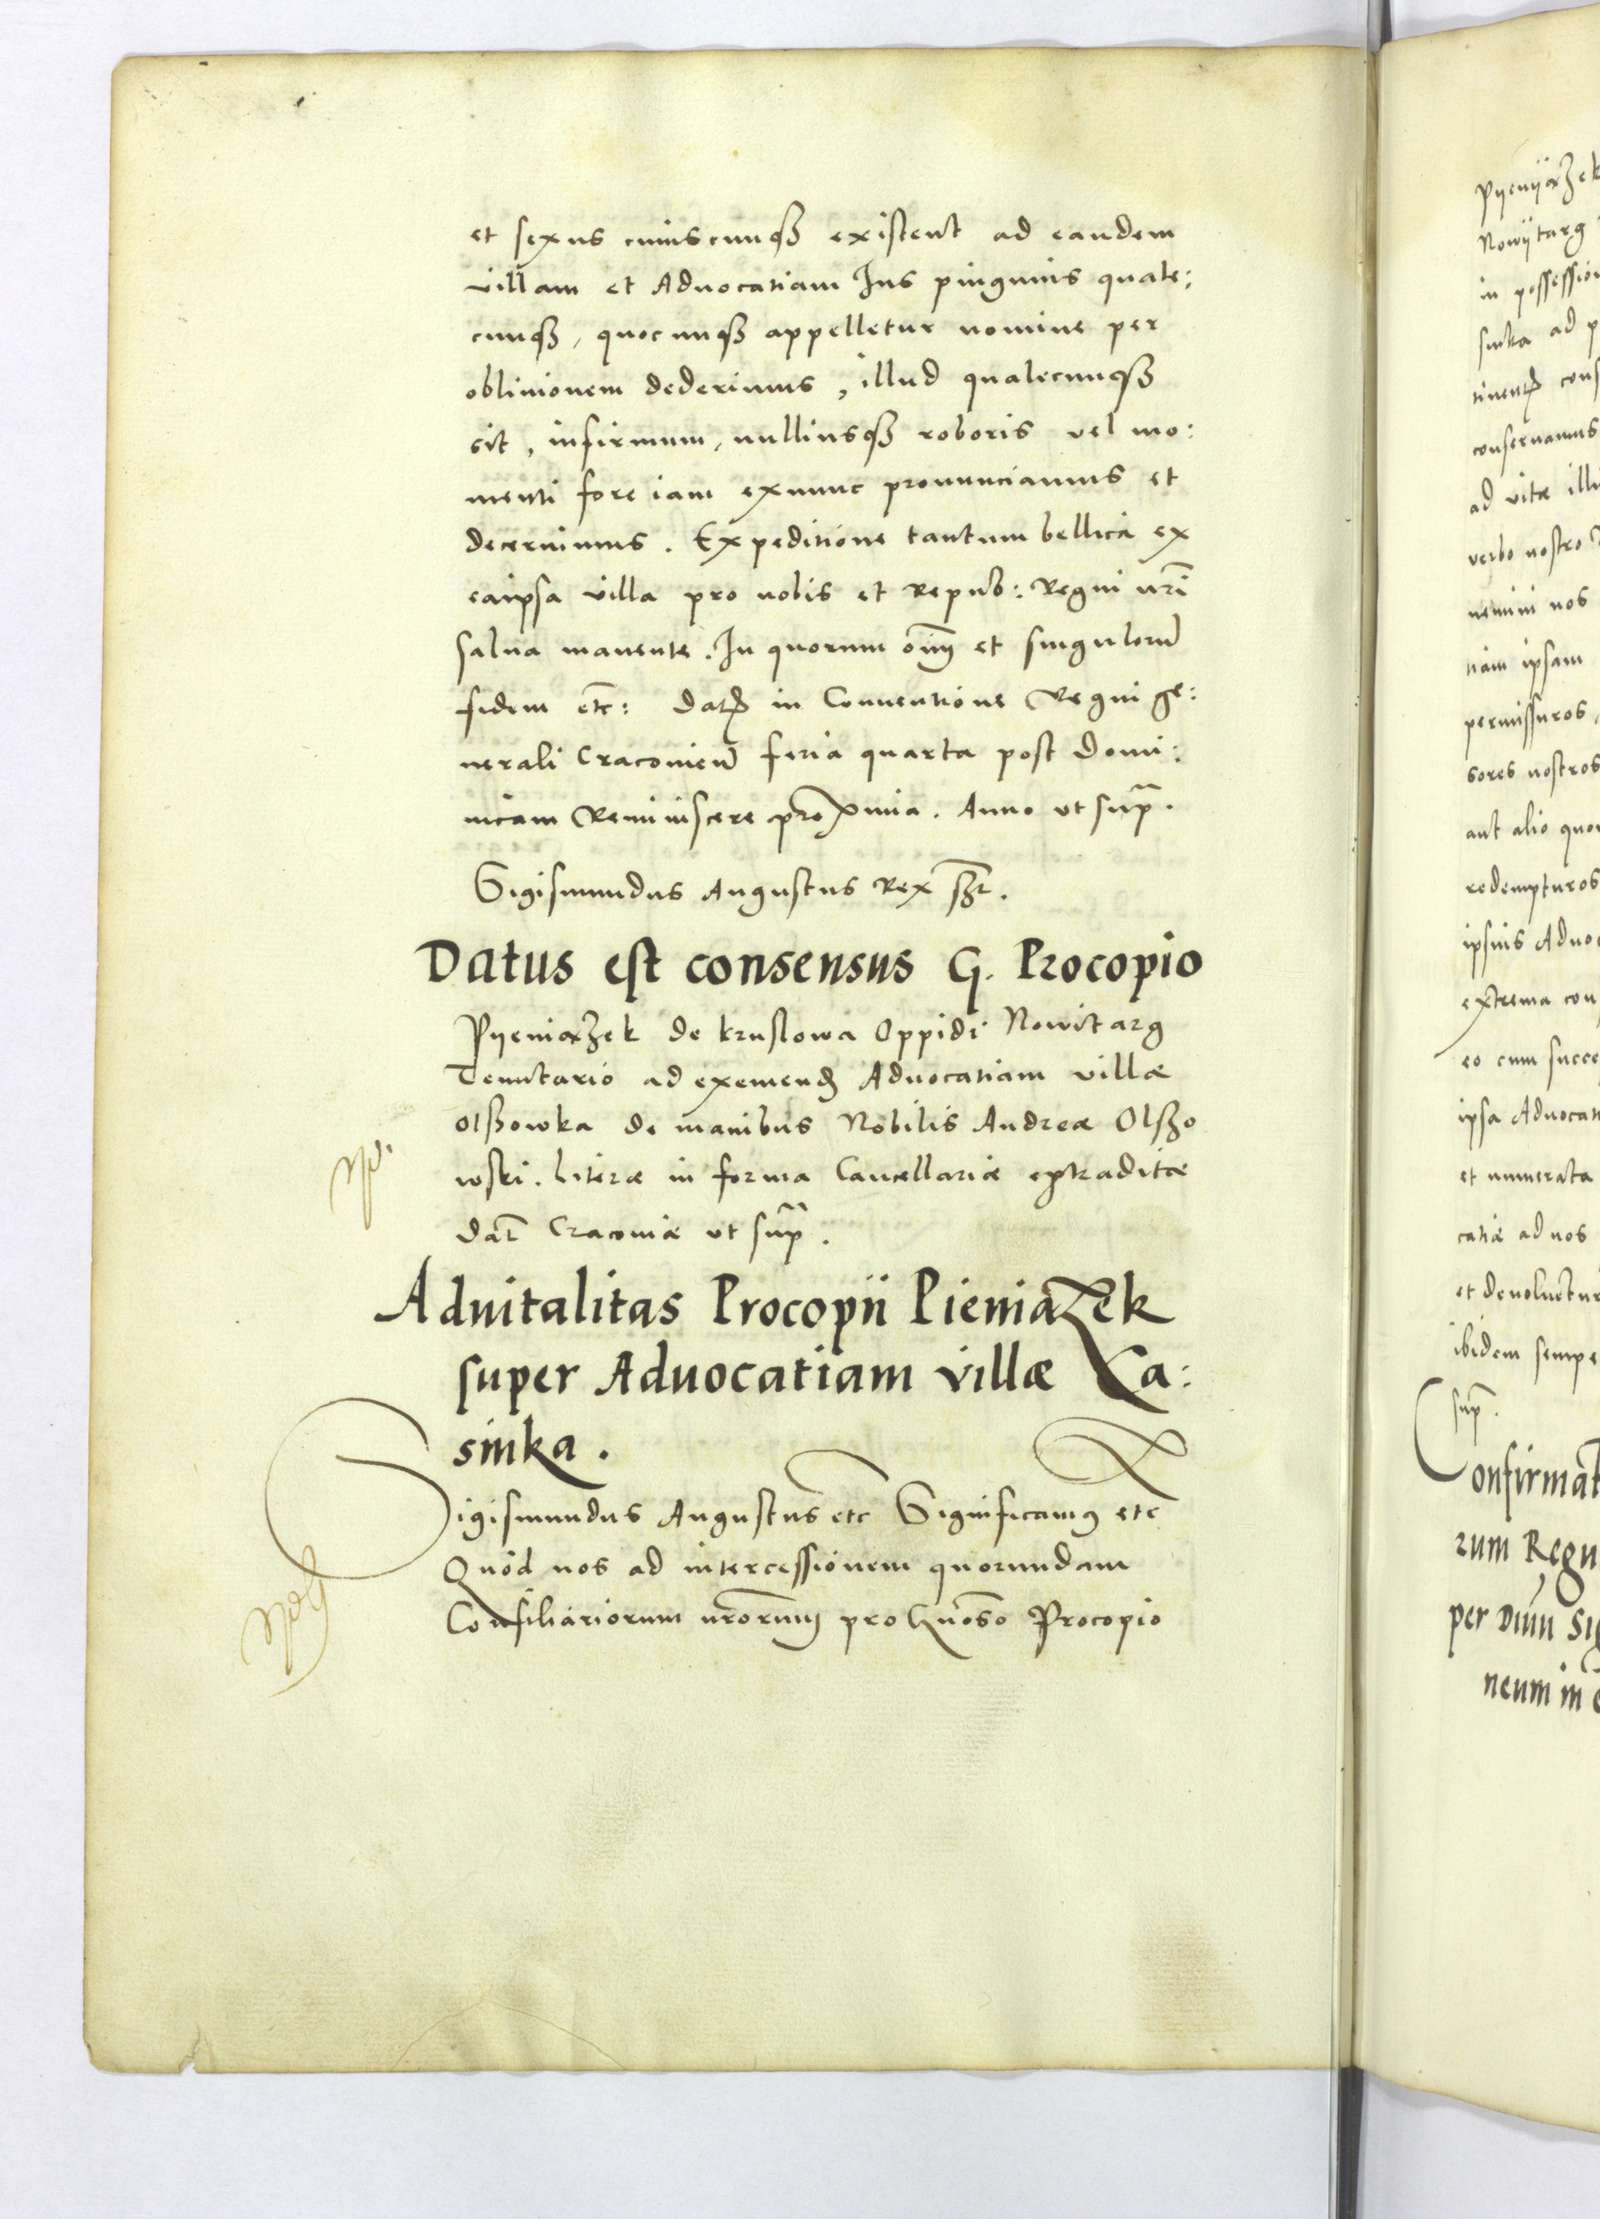 et sexus cuiuscunqȝ existent ad eandem
villam et Aduocatiam Jus pinguius quale:
cunqȝ, quocunqȝ appelletur nomine per
obliuionem dederimus, illud qualecunqȝ
sit, infirmum, nulliusqȝ roboris vel mo:
menti fore iam exnunc pronunciamus et
decernimus. Expeditione tantum bellica ex
eaipsa villa pro nobis et Repub: Regni nri
salua manente. In quorum oim et singulorum
fidem etc: Dat in Conuentione Regni ge:
nerali Cracovien feria quarta post Domi:
nicam Reminiscere proxima. Anno vt supra.
Sigismundus Augustus Rex sst.
Datus est consensus G. Procopio
Pyeniazek de Kruslowa Oppidi Nowitarg
Tenutario ad exemend Aduocatiam villæ
Olschowka de manibus Nobilis Andreæ Olscho
wski. Literæ in forma Cancellariæ extraditæ
Dat Cracoviæ vt supra.
Aduitalitas Procopii Pieniazek
super Aduocatiam villæ Ka:
sinka.
Sigismundus Augustus etc Significamus etc
Quod nos ad intercessionem quorundam
Consiliariorum nrorum pro Gnoso Procopio
Pyenyazek
Nowytarg
in possession
sinka ad p
tinent cons
conseruamus
ad vitæ illi
verbo nostro
nemini nos
tiam ipsam
permissuros,
sores nostros
aut alio quo
redempturos
ipsius Aduoc
extrema con
eo cum succe
ipsa Aduocati
et numerata
catiæ ad nos
et deuoluetur
ibidem sempe
supra.
Confirmat
rum Regu
per Diuu Si
neum in